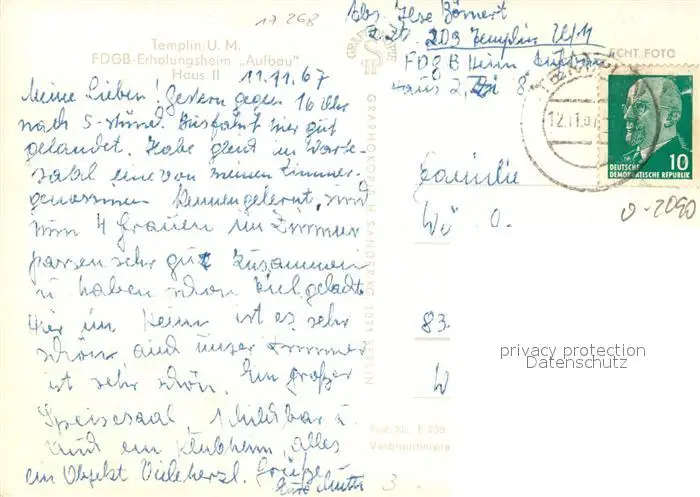 17 268
Templin U. M.
FDGB-Erholungsheim „Aufbau"
Haus II
11.11.67
Meine Lieben! Gestern gegen 16 Uhr
nach 5-stünd. Busfahrt hier gut
gelandet. Habe gleich im Warte-
saal eine von meinen Zimmer-
genossinnen kennengelernt, sind
nun 4 Frauen im Zimmer
passen sehr gut zusammen
u. haben schon viel gelacht.
Hier im Heim ist es sehr
schön auch unser Zimmer
ist sehr schön. Ein großer
Speisesaal, 1 Milchbar u.
auch ein Klubheim, alles
ein Objekt Viele herzl. Grüße
Eure Mutti
Abs. Ilse Börnert
z. Zt. 209 Templin U/M
FDGB Heim Aufbau
Haus 2, 8
ECHT FOTO
12.11.67
DEUTSCHE
DEMOKRATISCHE REPUBLIK
10
0-2090
Familie
W O.
83
W
GRAPHOKOPIE H. SANDER KG 1071 BERLIN
Best.-Nr. E 239
Verbraucherpre
3
privacy protection
Datenschutz